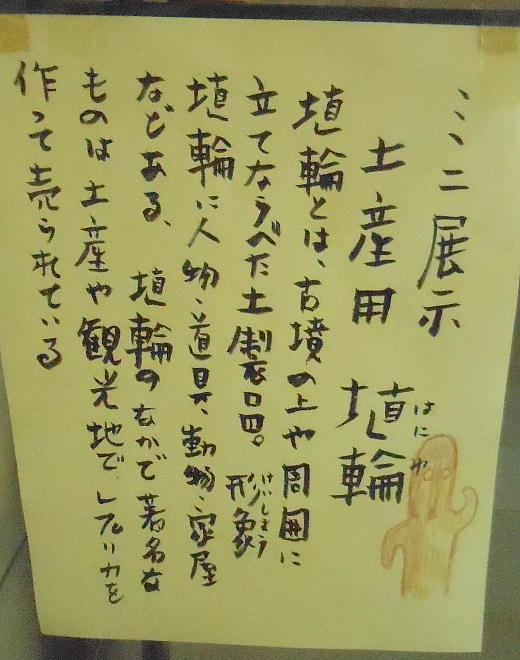 ミニ展示
土産用 埴輪
はにわ
埴輪とは、古墳の上や周囲に
立てならべた土製品。形象
けいしょう
埴輪に人物、道具、動物、家屋
などある、埴輪のなかで著名な
ものは土産や観光地で、レプリカを
作って売られている